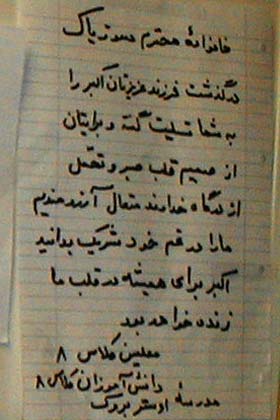 خانوادهٔ محترم دسوزپاک
درگذشت فرزند عزیزتان اکبر را
به شما تسلیت گفته و برایتان
از صمیم قلب صبر و تحمّل
از درگاه خداوند متعال آرزومندیم
ما را در غم خود شریک بدانید
اکبر برای همیشه در قلب ما
زنده خواهد بود
معلمین کلاس ۸
دانش آموزان کلاس ۸
مدرسهٔ اوستربروک